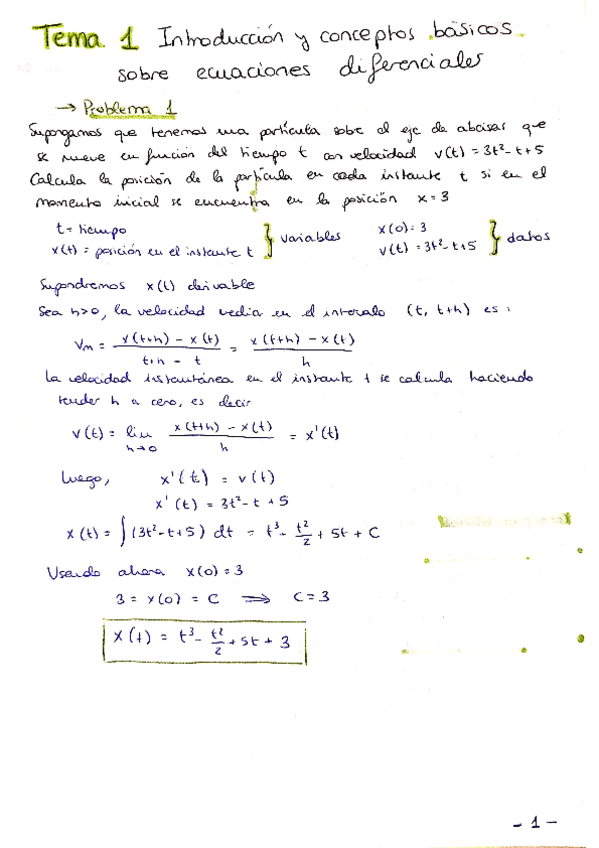 Tema 1 Introducción y conceptos básicos
sobre ecuaciones diferenciales
→ Problema 1
Supongamos que tenemos una partícula sobre el eje de abcisas que
se mueve en función del tiempo t con velocidad v(t) = 3t² - t + 5
Calcula la posición de la partícula en cada instante t si en el
momento inicial se encuentra en la posición x = 3
t = tiempo
x(t) = posición en el instante t } variables
x(0) = 3
v(t) = 3t² - t + 5 } datos
Supondremos x(t) derivable
Sea h>0, la velocidad media en el intervalo (t, t+h) es:
Vm = x(t+h) - x(t) / t+h - t = x(t+h) - x(t) / h
La velocidad instantánea en el instante t se calcula haciendo
tender h a cero, es decir
v(t) = lim h→0 x(t+h) - x(t) / h = x'(t)
Luego, x'(t) = v(t)
x'(t) = 3t² - t + 5
x(t) = ∫(3t² - t + 5) dt = t³ - t²/2 + 5t + C
Usando ahora x(0) = 3
3 = x(0) = C ⟹ C = 3
x(t) = t³ - t²/2 + 5t + 3
- 1 -